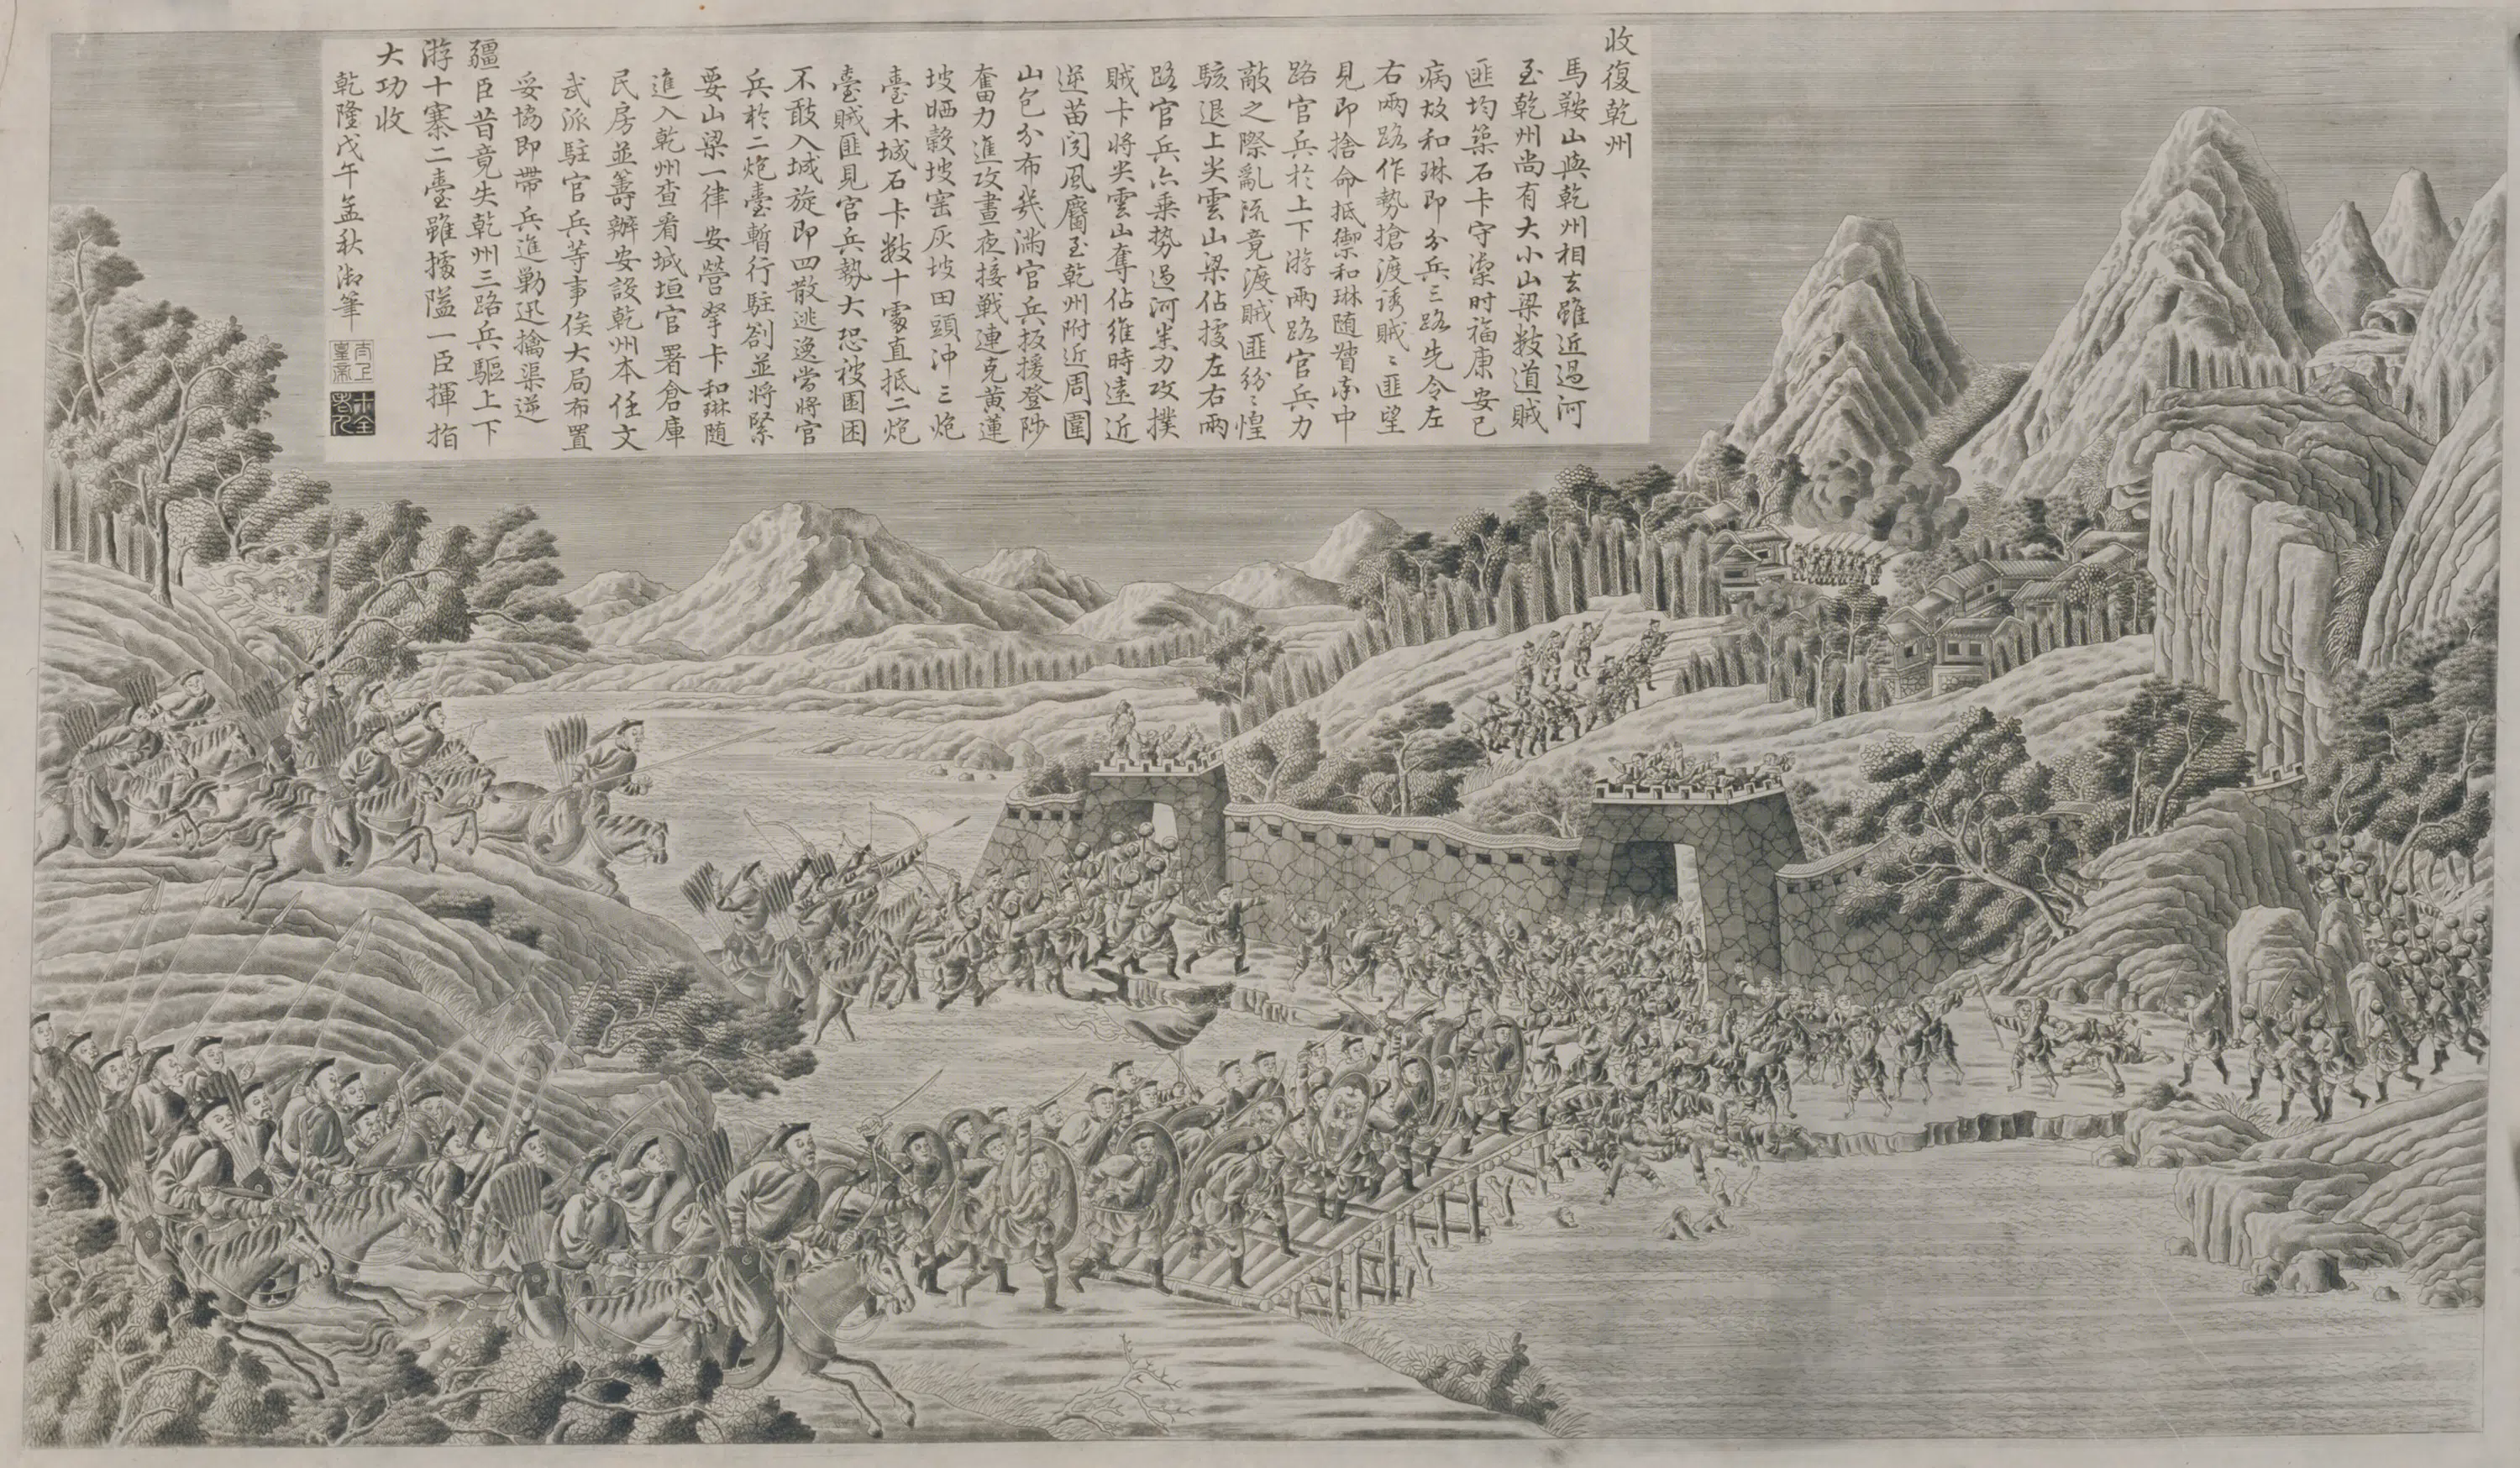 收復乾州
馬鞍山與乾州相去雖近過河
至乾州尚有大小山梁數道賊
匪均築石卡守禦時福康安已
病故和琳即分兵三路先令左
右兩路作勢搶渡誘賊〻匪望
見即捨命抵禦和琳随督率中
路官兵於上下游兩路官兵力
敵之際亂流竟渡賊匪紛〻惶
駭退上尖雲山梁佔據左右兩
路官兵亦乗勢過河併力攻撲
賊卡將尖雲山奪佔維時遠近
逆苗聞風麕至乾州附近周圍
山包分布幾滿官兵扳援登陟
奮力進攻晝夜接戰連克黄蓮
坡晒穀坡窑灰坡田頭冲三炮
臺木城石卡數十處直抵二炮
臺賊匪見官兵勢大恐被圍困
不敢入城旋即四散逃逸當將官
兵於二炮臺暫行駐劄並將緊
要山梁一律安營拏卡和琳随
進入乾州查看城垣官署倉庫
民房並籌辦安設乾州本任文
武派駐官兵等事俟大局布置
妥協即帶兵進勦迅擒渠逆
疆臣昔竟失乾州三路兵驅上下
游十寨二臺雖據隘一臣揮指
大功收
乾隆戊午孟秋御筆
太上皇帝
十全老人